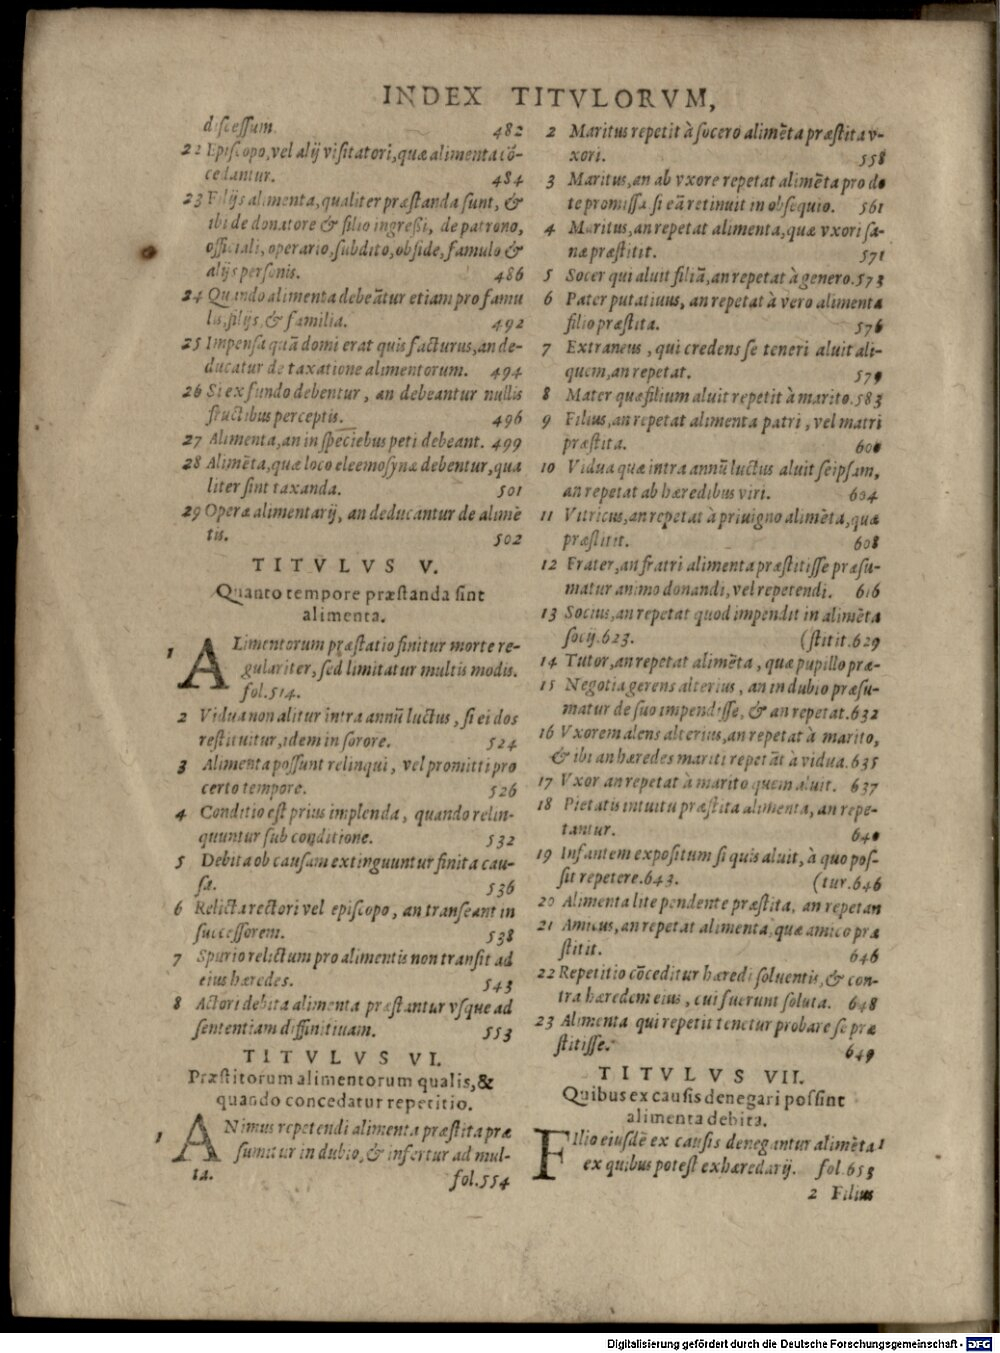 INDEX TITVLORVM,
discessum. 482
22 Episcopo, vel alij visitatori, quæ alimenta cō-
cedantur. 484
23 Filijs alimenta, qualiter præstanda sunt, &
ibi de donatore & filio ingreßi, de patrono,
officiali, operario, subdito, obside, famulo &
alijs personis. 486
24 Quando alimenta debeātur etiam pro famu
lis, filijs, & familia. 492
25 Impensa quā domi erat quis facturus, an de-
ducatur de taxatione alimentorum. 494
26 Si ex fundo debentur, an debeantur nullis
fructibus perceptis. 496
27 Alimenta, an in speciebus peti debeant. 499
28 Alimēta, quæ loco eleemosynæ debentur, qua
liter sint taxanda. 501
29 Operæ alimentarij, an deducantur de alimē
tis. 502
TITVLVS V.
Quanto tempore præstanda sint
alimenta.
1 ALimentorum præstatio finitur morte re-
gulariter, sed limitatur multis modis.
fol. 514.
2 Vidua non alitur intra annū luctus, si ei dos
restituitur, idem in sorore. 524
3 Alimenta possunt relinqui, vel promitti pro
certo tempore. 526
4 Conditio est prius implenda, quando relin-
quuntur sub conditione. 532
5 Debita ob causam extinguuntur finita cau-
sa. 536
6 Relicta rectori vel episcopo, an transeant in
successorem. 538
7 Spurio relictum pro alimentis non transit ad
eius hæredes. 543
8 Actori debita alimenta præstantur vsque ad
sententiam diffinitiuam. 553
TITVLVS VI.
Præstitorum alimentorum qualis, &
quando concedatur repetitio.
1 ANimus repetendi alimenta præstita præ
sumitur in dubio, & infertur ad mul-
ta. fol. 554
2 Maritus repetit à socero alimēta præstita v-
xori. 558
3 Maritus, an ab vxore repetat alimēta pro do
te promissa si eā retinuit in obsequio. 561
4 Maritus, an repetat alimenta, quæ vxori sa-
næ præstitit. 571
5 Socer qui aluit filiā, an repetat à genero. 573
6 Pater putatiuus, an repetat à vero alimenta
filio præstita. 576
7 Extraneus, qui credens se teneri aluit ali-
quem, an repetat. 579
8 Mater quæ filium aluit repetit à marito. 583
9 Filius, an repetat alimenta patri, vel matri
præstita. 600
10 Vidua quæ intra annū luctus aluit seipsam,
an repetat ab hæredibus viri. 604
11 Vitricus, an repetat à priuigno alimēta, quæ
præstitit. 608
12 Frater, an fratri alimenta præstitisse præsu-
matur animo donandi, vel repetendi. 616
13 Socius, an repetat quod impendit in alimēta
socij. 623. (stitit. 629
14 Tutor, an repetat alimēta, quæ pupillo præ-
15 Negotia gerens alterius, an in dubio præsu-
matur de suo impendisse, & an repetat. 632
16 Vxorem alens alterius, an repetat à marito,
& ibi an hæredes mariti repetāt à vidua. 635
17 Vxor an repetat à marito quem aluit. 637
18 Pietatis intuitu præstita alimenta, an repe-
tantur. 640
19 Infantem expositum si quis aluit, à quo pos-
sit repetere. 643. (tur. 646
20 Alimenta lite pendente præstita, an repetan
21 Amicus, an repetat alimenta, quæ amico præ
stitit. 646
22 Repetitio cōceditur hæredi soluentis, & con-
tra hæredem eius, cui fuerunt soluta. 648
23 Alimenta qui repetit tenetur probare se præ
stitisse. 649
TITVLVS VII.
Quibus ex causis denegari possint
alimenta debita.
FIlio eiusdē ex causis denegantur alimēta 1
ex quibus potest exhæredarij. fol. 653
2 Filius
Digitalisierung gefördert durch die Deutsche Forschungsgemeinschaft - DFG